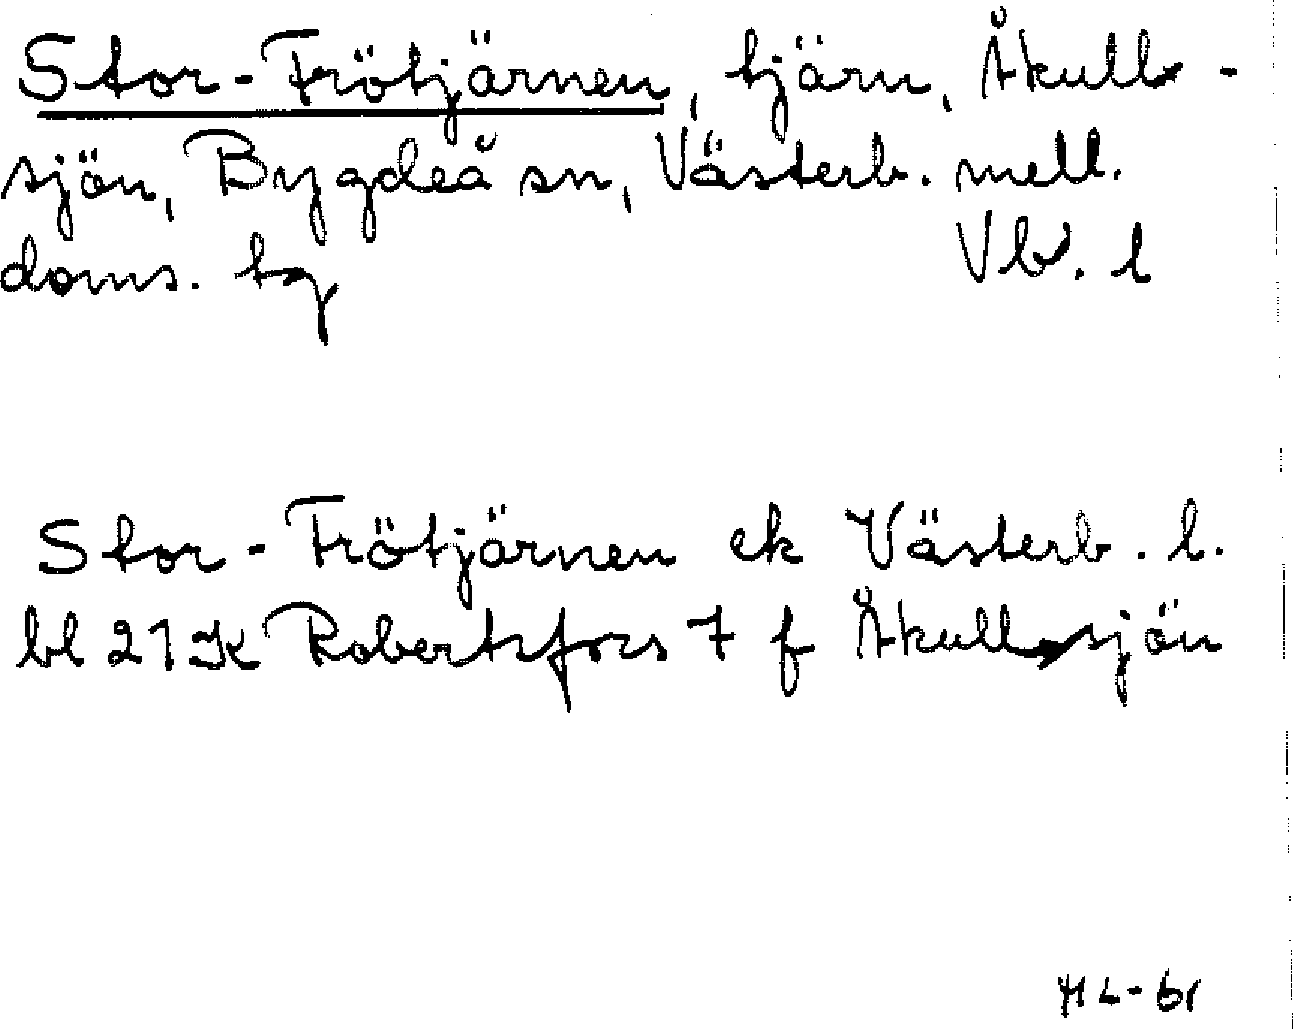 Stor-Frötjärnen, tjärn, Åkulls-
sjön, Bygdeå sn, Västerb. mell.
doms. tg Vb. l
Stor-Frötjärnen ek Västerb. l.
bl 21K Robertsfors 7 f Åkullsjön